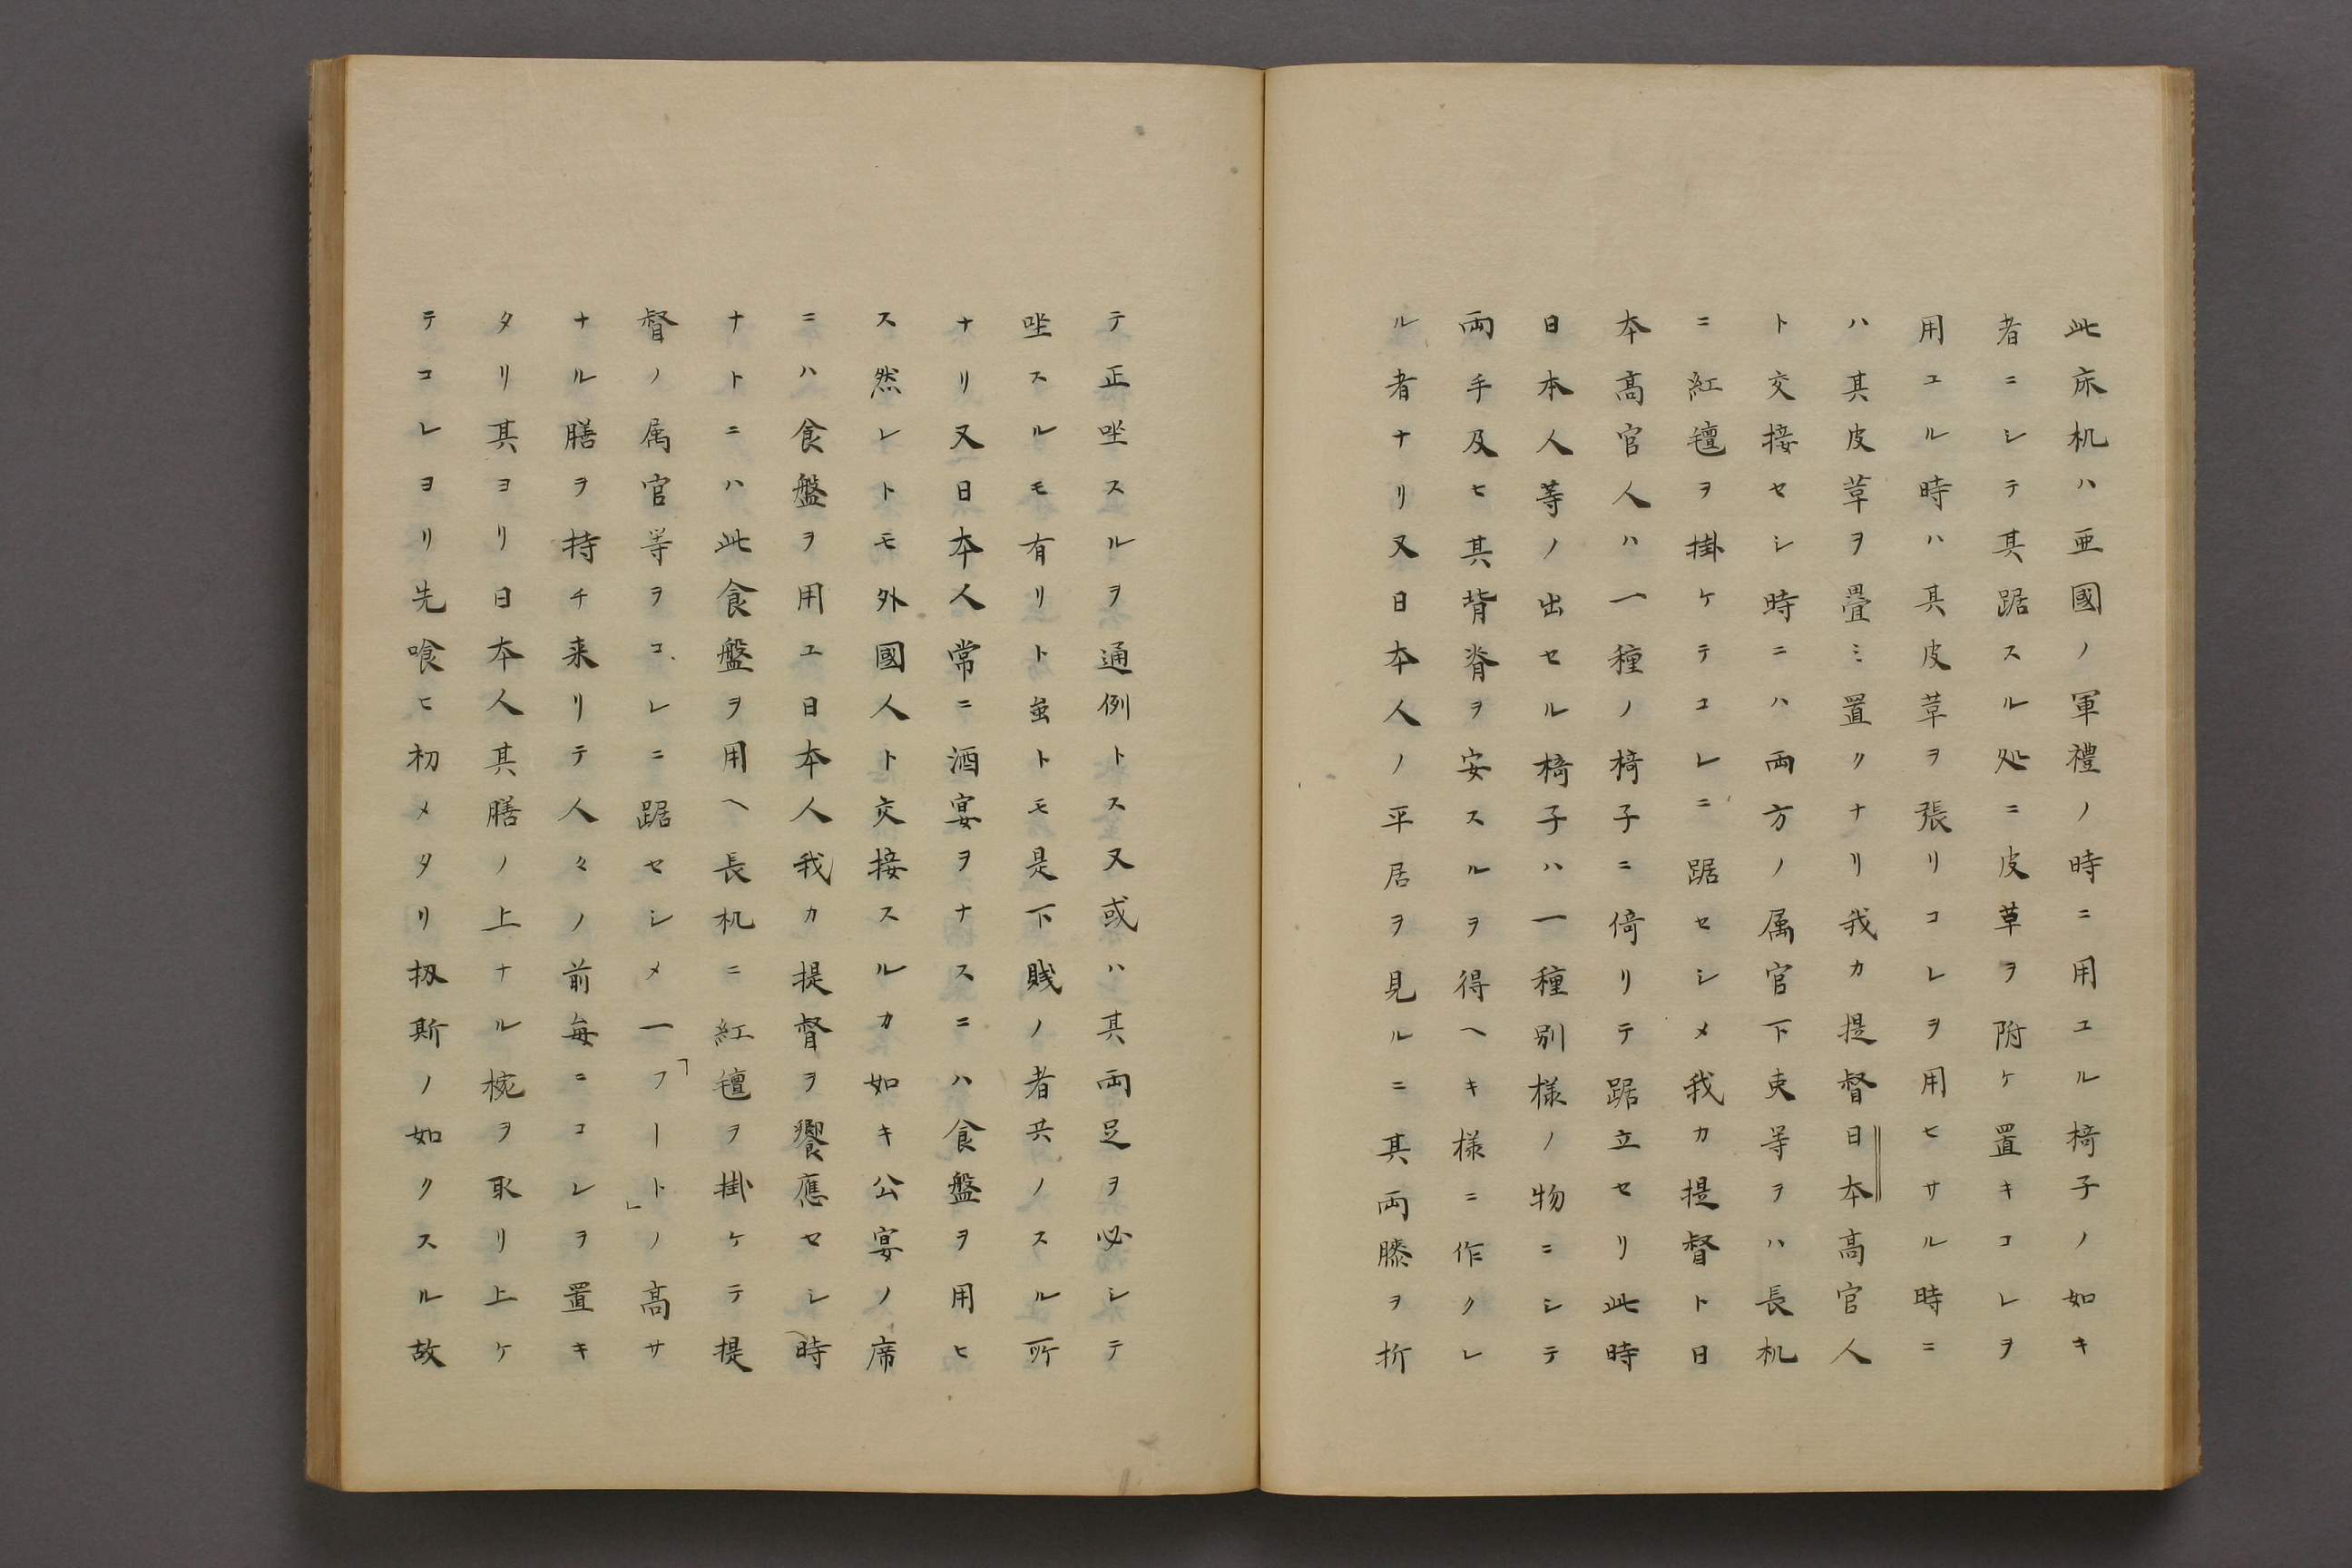 此床机ハ亜國ノ軍禮ノ時ニ用ユル椅子ノ如キ
者ニシテ其踞スル処ニ皮草ヲ附ケ置キコレヲ
用ユル時ハ其皮草ヲ張リコレヲ用ヒサル時ニ
ハ其皮草ヲ畳ミ置クナリ我カ提督日本高官人
ト交接セシ時ニハ両方ノ属官下吏等ヲハ長机
ニ紅氊ヲ掛ケテコレニ踞セシメ我カ提督ト日
本高官人ハ一種ノ椅子ニ倚リテ踞立セリ此時
日本人等ノ出セル椅子ハ一種別様ノ物ニシテ
両手及ヒ其背脊ヲ安スルヲ得ヘキ様ニ作クレ
ル者ナリ又日本人ノ平居ヲ見ルニ其両膝ヲ折
テ正坐スルヲ通例トス又或ハ其両足ヲ必シテ
坐スルモ有リト虽トモ是下賎ノ者共ノスル所
ナリ又日本人常ニ酒宴ヲナスニハ食盤ヲ用ヒ
ス然レトモ外國人ト交接スルカ如キ公宴ノ席
ニハ食盤ヲ用ユ日本人我カ提督ヲ饗應セシ時
ナトニハ此食盤ヲ用ヘ長机ニ紅氊ヲ掛ケテ提
督ノ属官等ヲコレニ踞セシメ一「フート」ノ高サ
ナル膳ヲ持チ来リテ人々ノ前毎ニコレヲ置キ
タリ其ヨリ日本人其膳ノ上ナル椀ヲ取リ上ケ
テコレヨリ先喰ヒ初メタリ扨斯ノ如クスル故